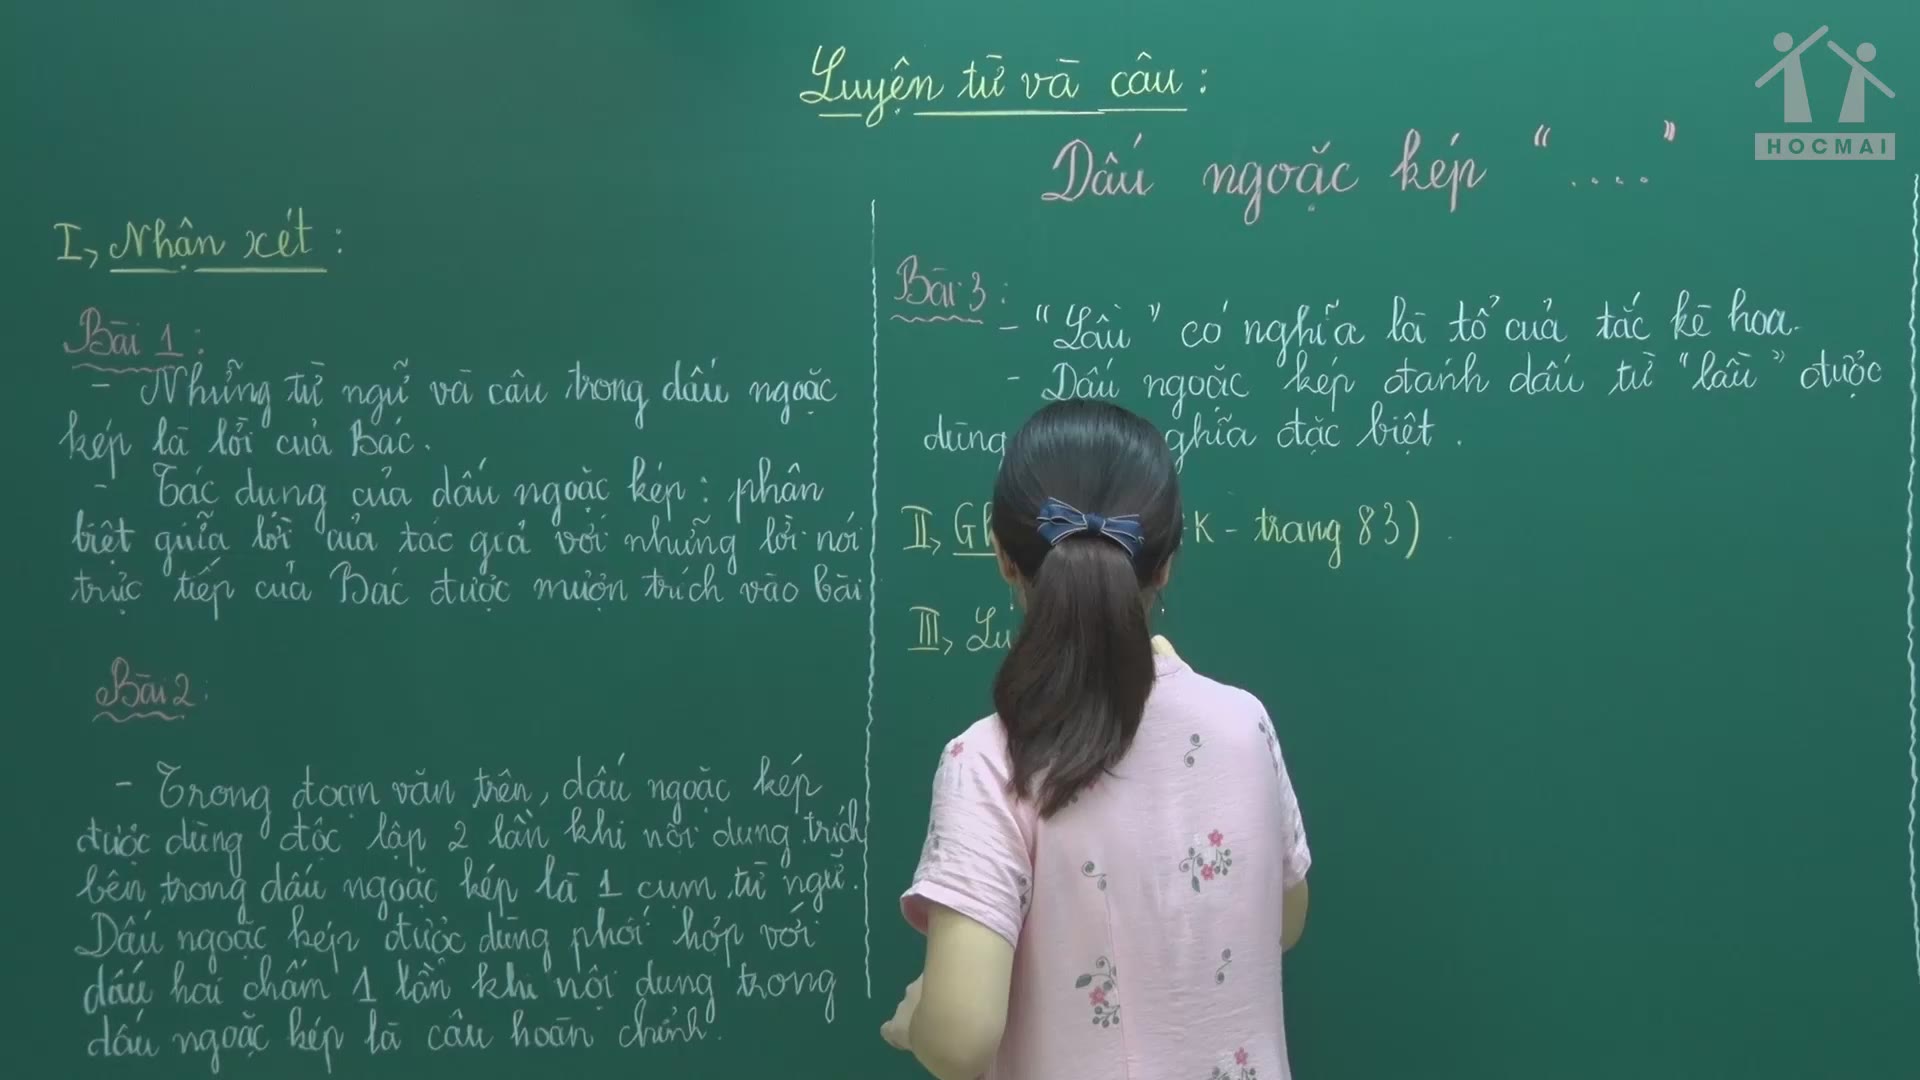 Luyện từ và câu :
Dấu ngoặc kép “....”
HOCMAI
I, Nhận xét :
Bài 1 :
- Những từ ngữ và câu trong dấu ngoặc
kép là lời của Bác.
- Tác dụng của dấu ngoặc kép : phân
biệt giữa lời của tác giả với những lời nói
trực tiếp của Bác được mượn trích vào bài
Bài 2 :
- Trong đoạn văn trên, dấu ngoặc kép
được dùng độc lập 2 lần khi nội dung trích
bên trong dấu ngoặc kép là 1 cụm từ ngữ.
Dấu ngoặc kép được dùng phối hợp với
dấu hai chấm 1 lần khi nội dung trong
dấu ngoặc kép là câu hoàn chỉnh.
Bài 3 :
- “Lầu” có nghĩa là tổ của tắc kè hoa.
- Dấu ngoặc kép đánh dấu từ “lầu” được
dùng nghĩa đặc biệt .
II, K - trang 83) .
III,